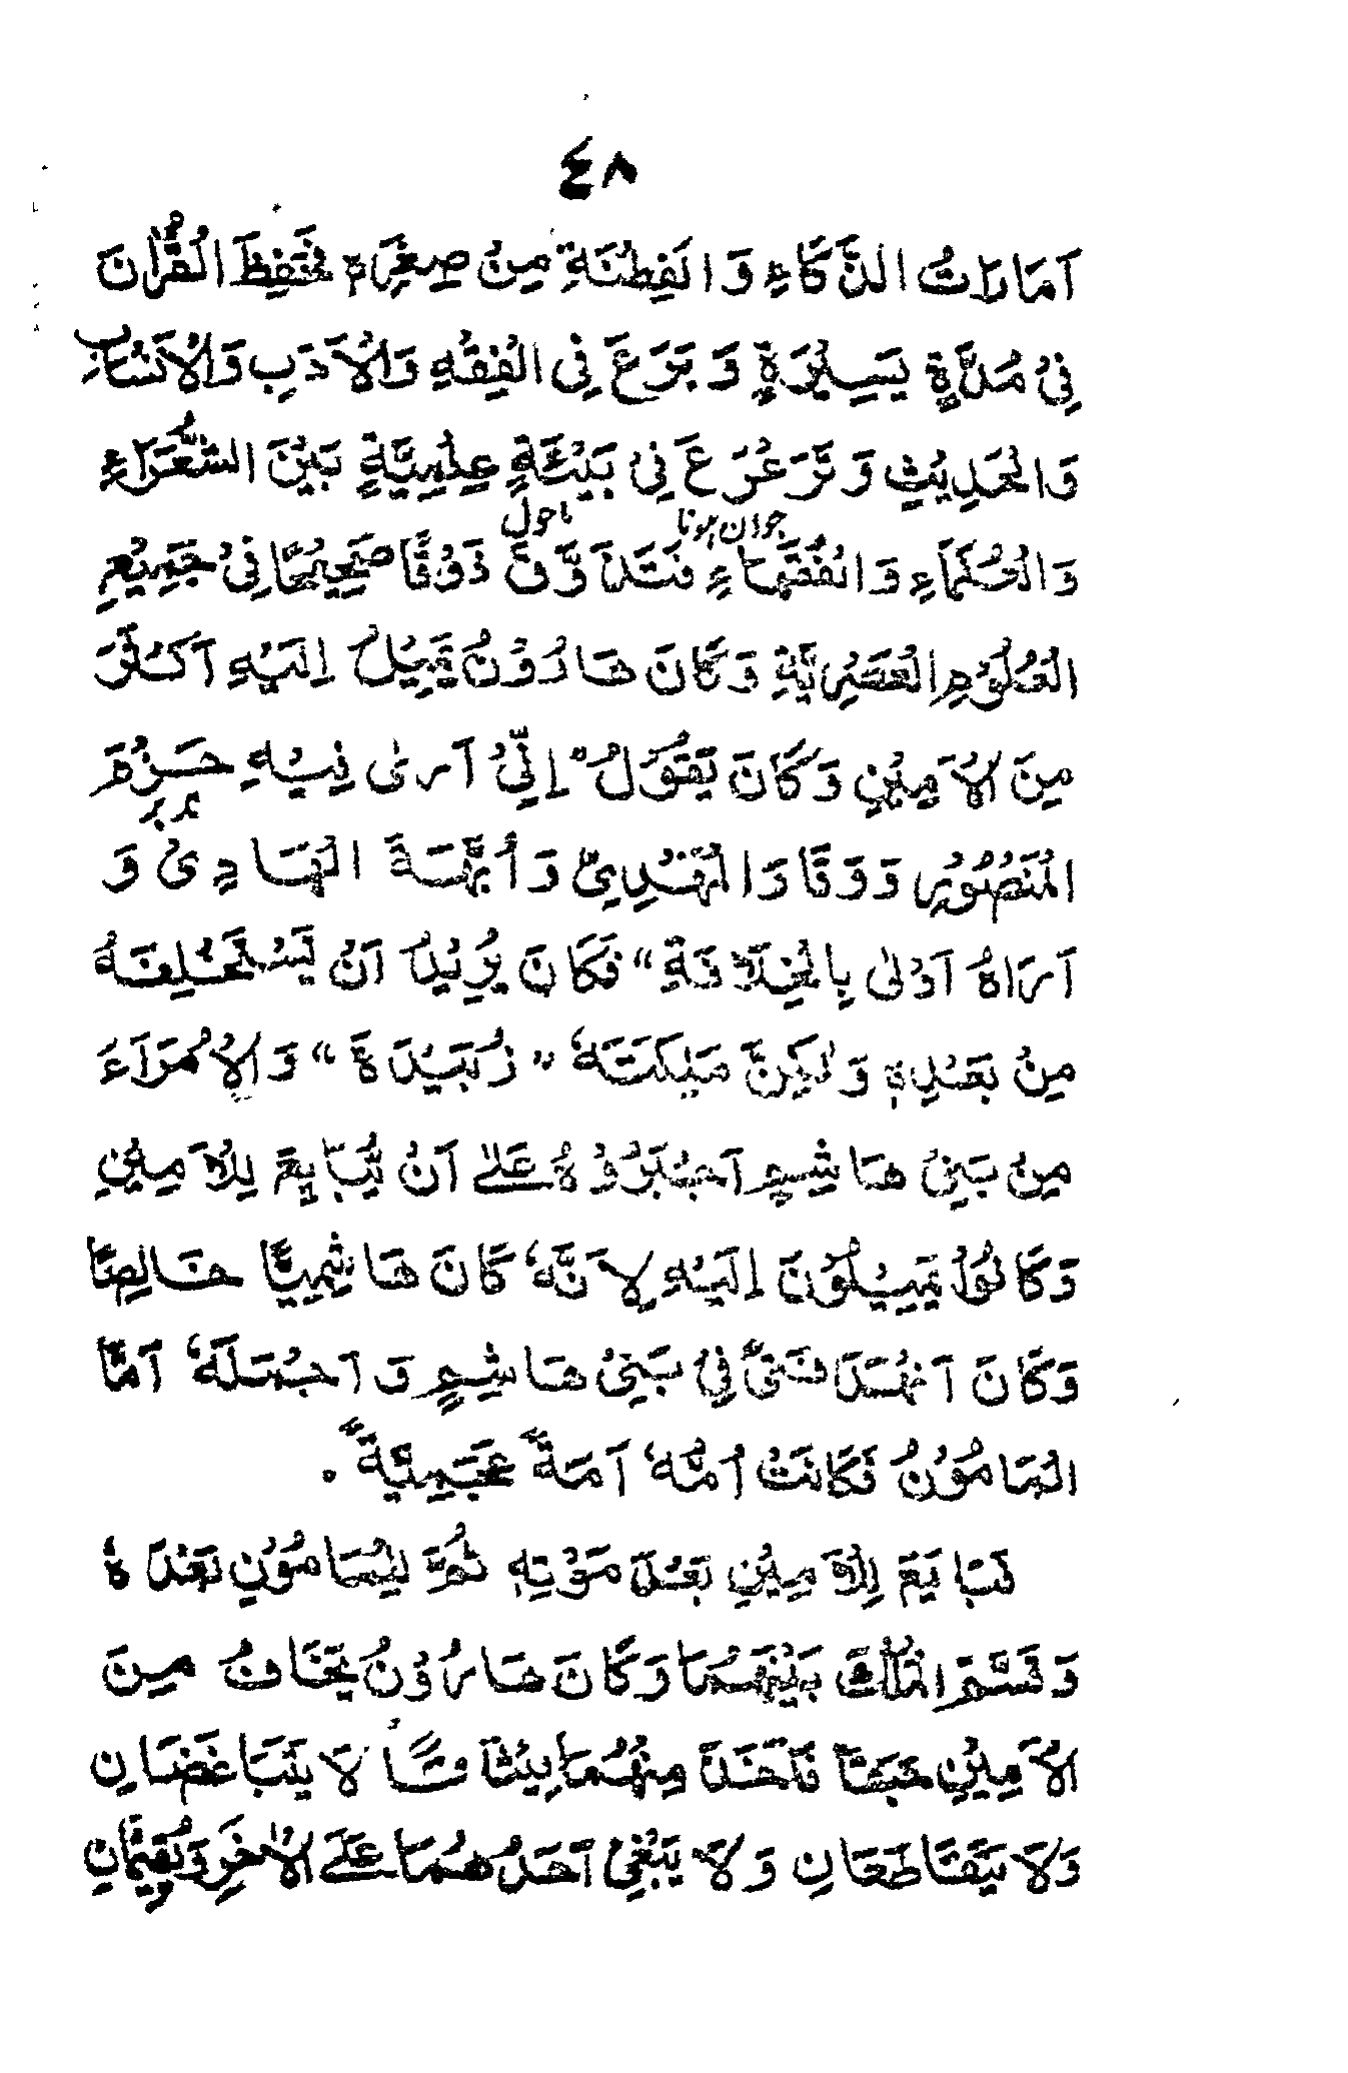 ٤٨
اَمَارَاتُ الذَّكَاءِ وَالْفِطْنَةِ مِنْ صِغَرِهٖ فَحَفِظَ الْقُرْاٰنَ
فِيْ مُدَّةٍ يَسِيْرَةٍ وَبَرَعَ فِي الْفِقْهِ وَالْاَدَبِ وَالْاَنْسَابِ
وَالْحَدِيْثِ وَتَرَعْرَعَ فِيْ بَيْئَةٍ عِلْمِيَّةٍ بَيْنَ الشُّعَرَاءِ
جوان ہونا ماحول
وَالْحُكَمَاءِ وَالْفُقَهَاءِ فَتَذَوَّقَ ذَوْقًا صَحِيْحًا فِيْ جَمِيْعِ
الْعُلُوْمِ الْعَصْرِيَّةِ وَكَانَ هَارُوْنُ يَمِيْلُ اِلَيْهِ اَكْثَرَ
مِنَ الْاَمِيْنِ وَكَانَ يَقُوْلُ "اِنِّيْ اَرٰى فِيْهِ حَزْمَ
الْمَنْصُوْرِ وَوَقَارَ الْمَهْدِيِّ وَاُبَّهَةَ الْهَادِيْ وَ
اَرَاهُ اَوْلٰى بِالْخِلَافَةِ" فَكَانَ يُرِيْدُ اَنْ يَسْتَخْلِفَهُ
مِنْ بَعْدِهٖ وَلٰكِنَّ مَلِكَتَهٗ "زُبَيْدَةَ" وَالْاُمَرَاءَ
مِنْ بَنِيْ هَاشِمٍ اَجْبَرُوْهُ عَلٰى اَنْ يُّبَايِعَ لِلْاَمِيْنِ
وَكَانُوْا يَمِيْلُوْنَ اِلَيْهِ لِاَنَّهٗ كَانَ هَاشِمِيًّا خَالِصًا
وَكَانَ اَنْهَدَ فَتًى فِيْ بَنِيْ هَاشِمٍ وَاَجْمَلَهٗ اَمَّا
الْمَامُوْنُ فَكَانَتْ اُمُّهٗ اَمَةً عَجَمِيَّةً.
فَبَايَعَ لِلْاَمِيْنِ بَعْدَ مَوْتِهٖ ثُمَّ لِلْمَامُوْنِ بَعْدَهٗ
وَقَسَّمَ الْمُلْكَ بَيْنَهُمَا وَكَانَ هَارُوْنُ يَخَافُ مِنَ
الْاَمِيْنِ خُبْثًا فَاَخَذَ مِنْهُمَا مِيْثَاقًا لَا يَتَبَاغَضَانِ
وَلَا يَتَقَاطَعَانِ وَلَا يَبْغِيْ اَحَدُهُمَا عَلَى الْاٰخَرِ وَيُقِيْمَانِ